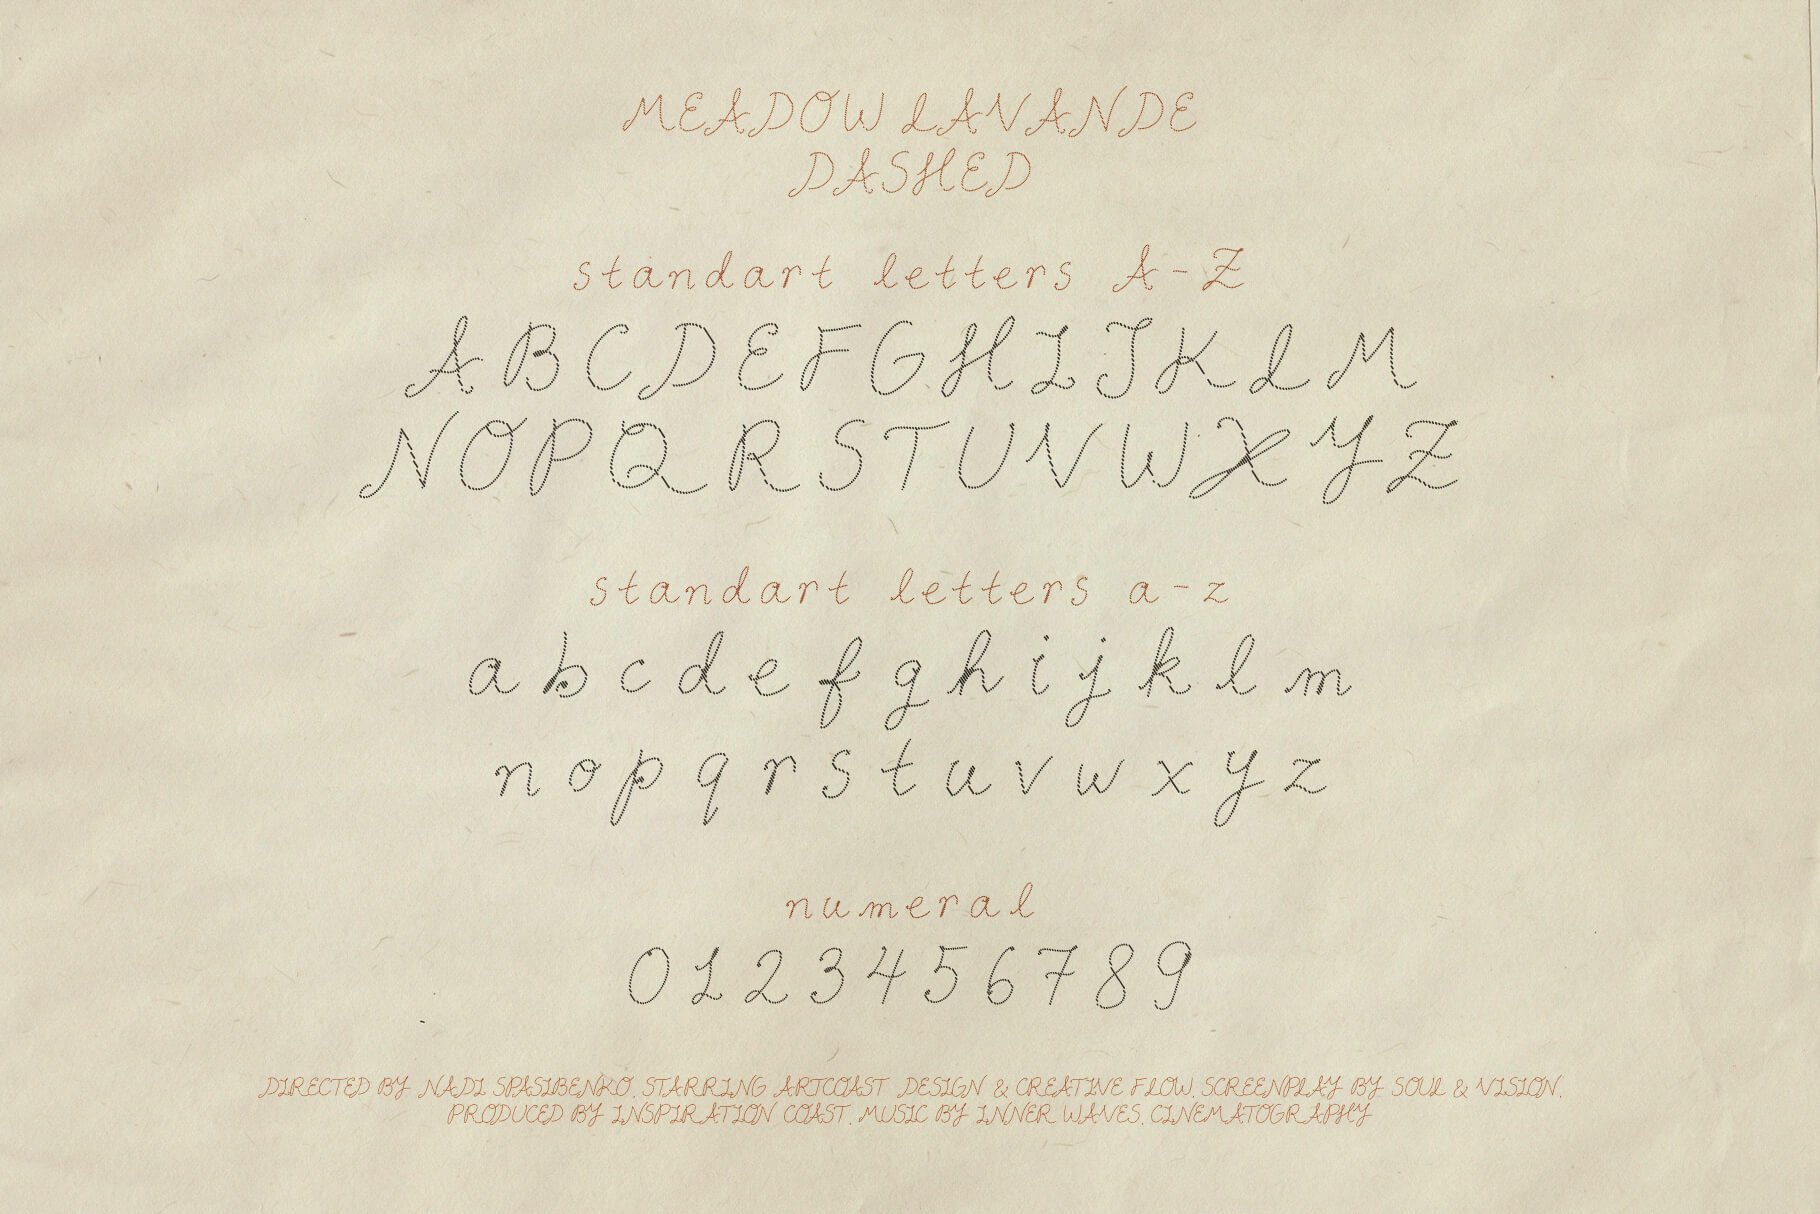 MEADOW LAVANDE
DASHED
standart letters A-Z
A B C D E F G H I J K L M
N O P Q R S T U V W X Y Z
standart letters a-z
a b c d e f g h i j k l m
n o p q r s t u v w x y z
numeral
0 1 2 3 4 5 6 7 8 9
DIRECTED BY NADI SPASIBENKO. STARRING ARTCOAST DESIGN & CREATIVE FLOW. SCREENPLAY BY SOUL & VISION.
PRODUCED BY INSPIRATION COAST. MUSIC BY INNER WAVES. CINEMATOGRAPHY